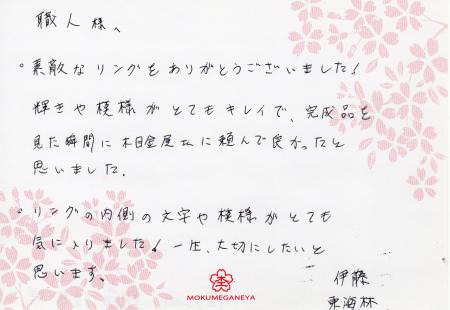 職人様へ
。素敵なリングをありがとうございました！
輝きや模様がとてもキレイで、完成品を
見た瞬間に木目金屋さんに頼んで良かったと
思いました。
。リングの内側の文字や模様がとても
気に入りました！一生、大切にしたいと
思います。
伊藤
東海林
MOKUMEGANEYA